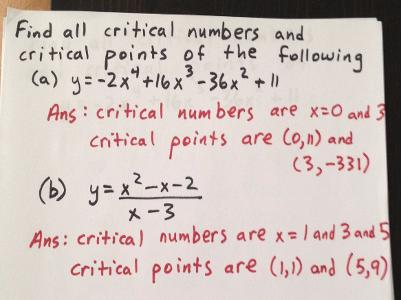 Find all critical numbers and
critical points of the following
(a) y=-2x⁴+16x³-36x²+11
Ans: critical numbers are x=0 and 3
critical points are (0,11) and
(3,-331)
(b) y= x²-x-2
x-3
Ans: critical numbers are x=1 and 3 and 5
critical points are (1,1) and (5,9)